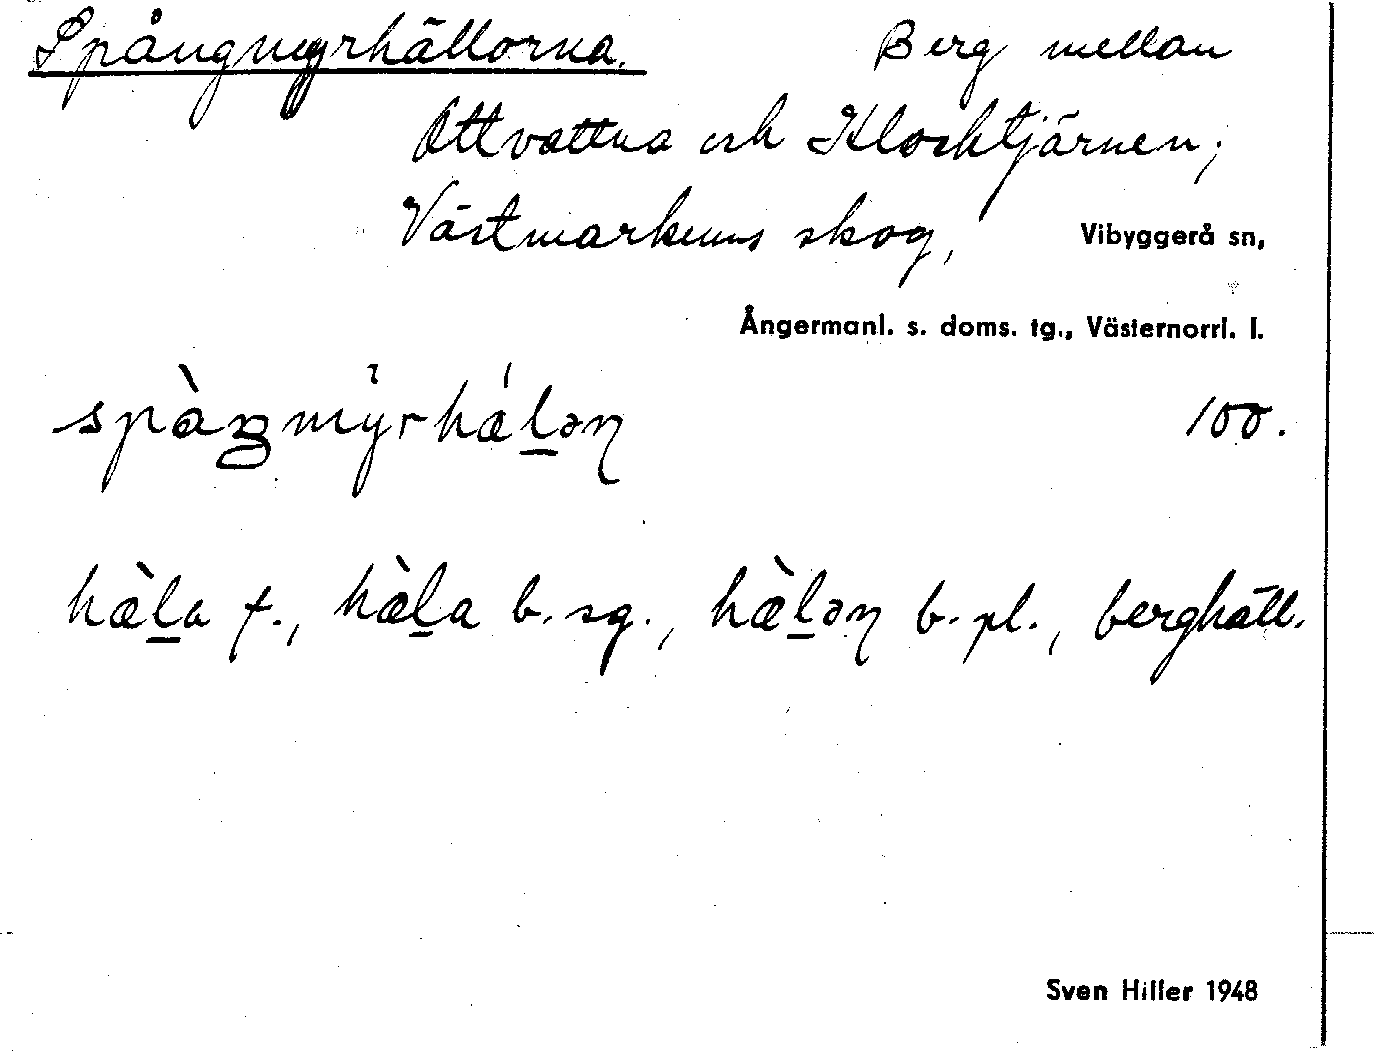 Spångmyrhällorna. Berg mellan
Ottvattna och Klocktjärnen;
Västmarkens skog, Vibyggerå sn,
Ångermanl. s. doms. tg., Västernorrl. l.
spàŋmy̆rhǽl̲əɳ 100.
hæ̀l̲a f., hæ̀l̲a b. sg., hæ̀l̲əɳ b. pl., berghäll.
Sven Hiller 1948